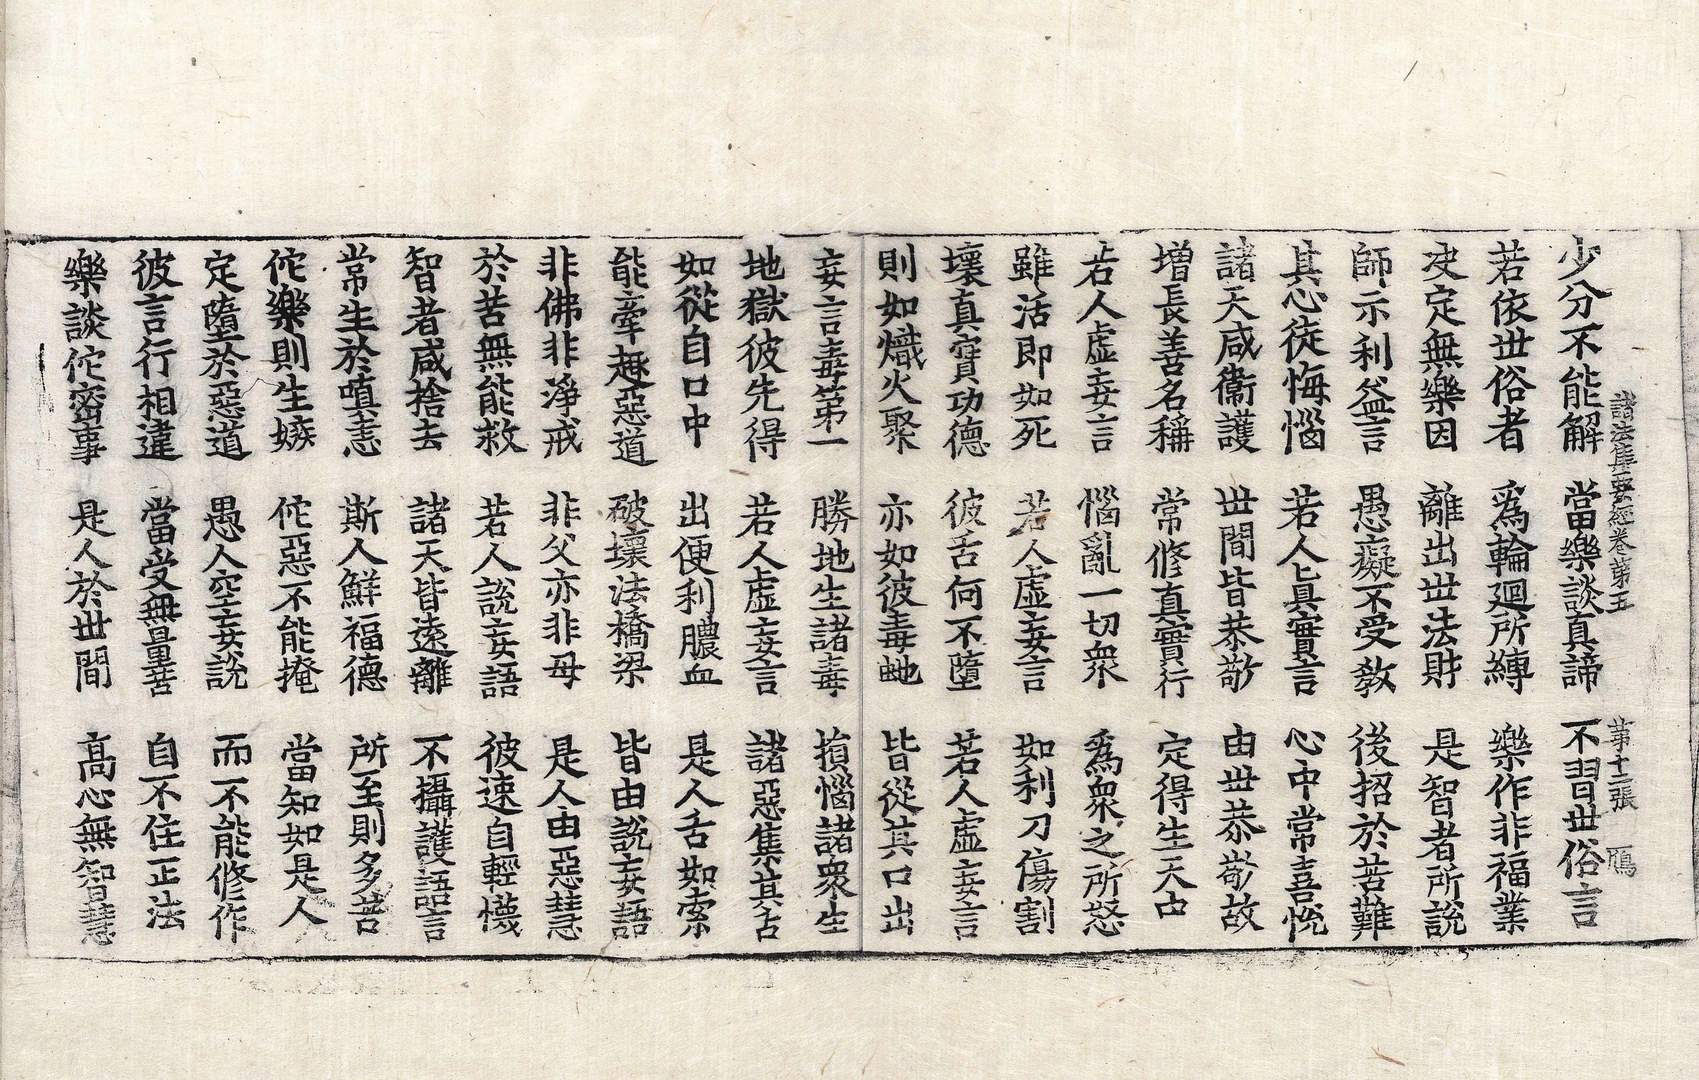 諸法集要經卷第五 第十二張 鴈
少分不能解 當樂談真諦 不習世俗言
若依世俗者 爲輪迴所縛 樂作非福業
決定無樂因 離出世法財 是智者所說
師示利益言 愚癡不受教 後招於苦難
其心徒悔惱 若人真實言 心中常喜悅
諸天咸衞護 世間皆恭敬 由世恭敬故
增長善名稱 常修真實行 定得生天中
若人虛妄言 惱亂一切衆 爲衆之所怒
雖活即如死 若人虛妄言 如利刀傷割
壞真實功德 彼舌何不墮 若人虛妄言
則如熾火聚 亦如彼毒虵 皆從其口出
妄言毒第一 勝地生諸毒 損惱諸衆生
地獄彼先得 若人虛妄言 諸惡集其舌
如從自口中 出便利膿血 是人舌如索
能牽趣惡道 破壞法橋梁 皆由說妄語
非佛非淨戒 非父亦非母 是人由惡慧
於苦無能救 若人說妄語 彼速自輕懱
智者咸捨去 諸天皆遠離 不攝護語言
常生於嗔恚 斯人鮮福德 所至則多苦
佗樂則生嫉 佗惡不能掩 當知如是人
定墮於惡道 愚人空妄說 而不能修作
彼言行相違 當受無量苦 自不住正法
樂談佗密事 是人於世間 高心無智慧